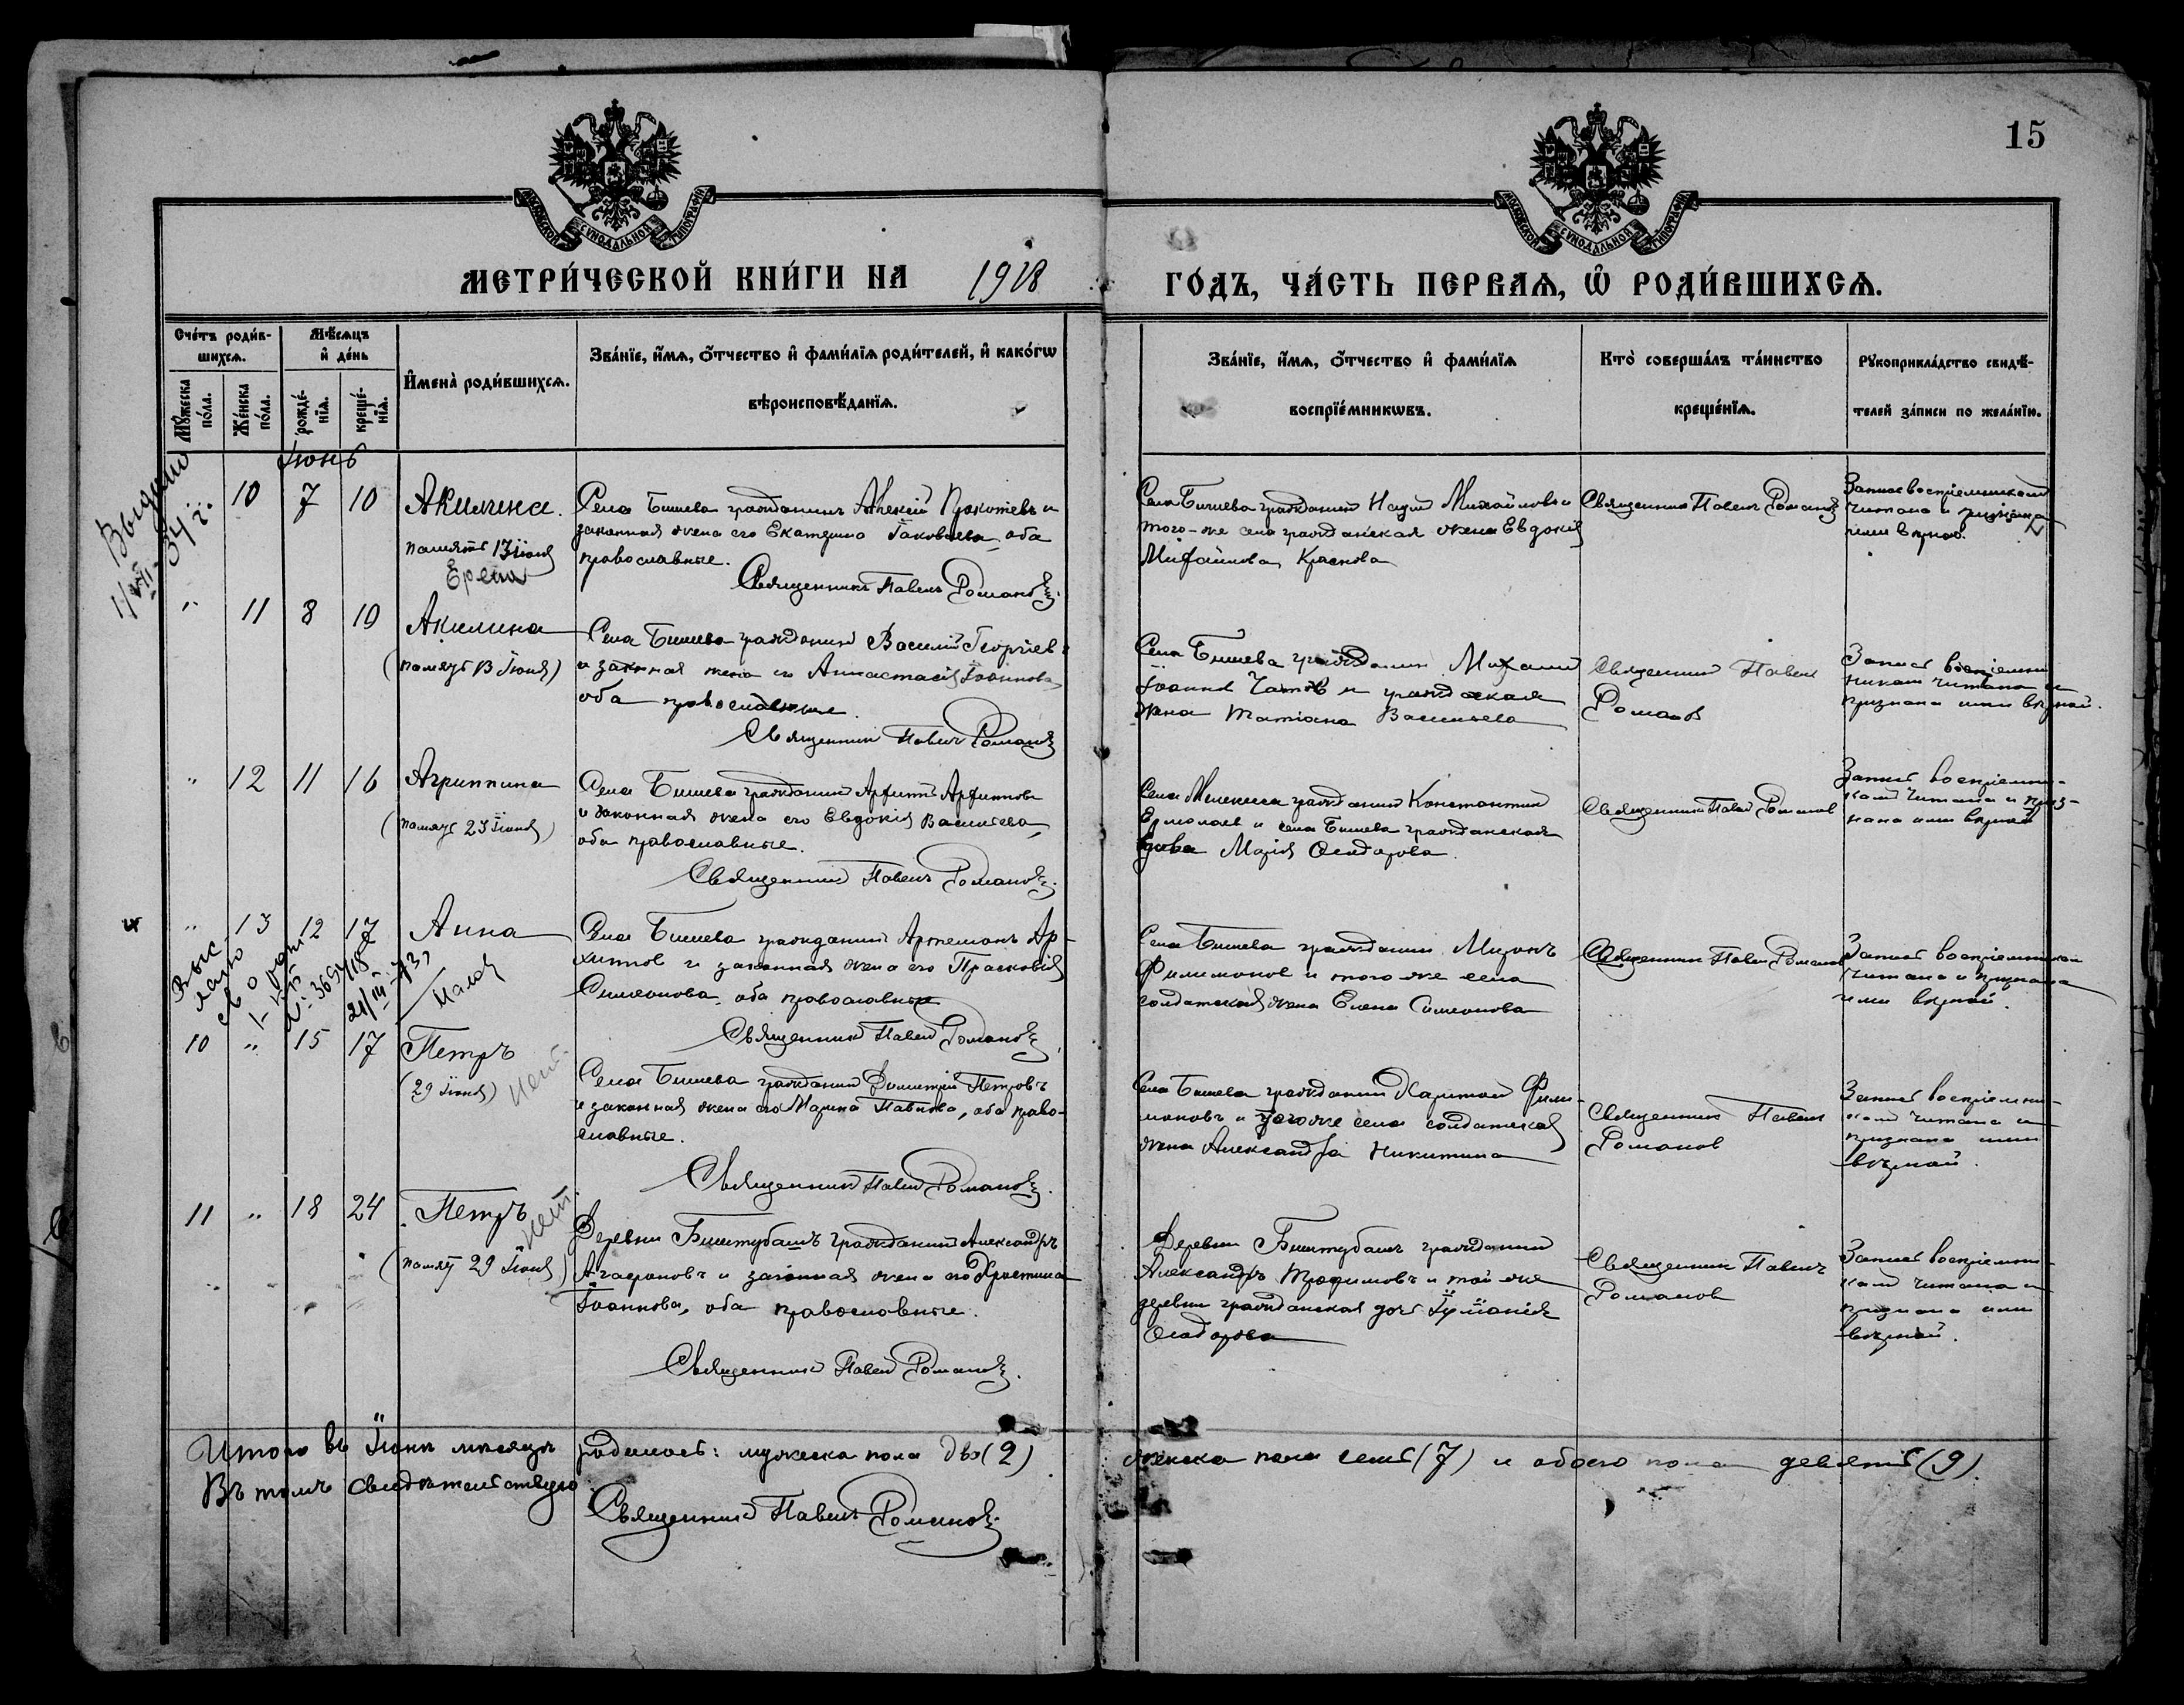 15
МОСКОВСКОЙ СУНОДАЛЬНОЙ ТИПОГРАФІИ
МОСКОВСКОЙ СУНОДАЛЬНОЙ ТИПОГРАФІИ
МЕТРИ́ЧЕСКОЙ КНИ́ГИ НА 1918
ГО́ДЪ, ЧА́СТЬ ПЕРВАѦ, Ѡ҆ РОДИ́ВШИХСѦ.
Сче́тъ роди́в-
шихсѧ.
Мꙋ́жеска
по́ла.
Же́нска
по́ла.
Мѣ́сѧцъ
и҆ де́нь
рожде́-
нїѧ.
креще́-
нїѧ.
И҆мена̀ роди́вшихсѧ.
Зва́нїе, и҆́мѧ, ѻ҆́тчество и҆ фами́лїѧ роди́телей, и҆ како́гѡ
вѣроисповѣ́данїѧ.
Зва́нїе, и҆́мѧ, ѻ҆́тчество и҆ фами́лїѧ
воспрїе́мникѡвъ.
Кто̀ соверша́лъ та́инство
креще́нїѧ.
Рꙋкоприкла́дство свидѣ́-
телей за́писи по жела́нїю.
Іюнь
Выдано
34 г.
10 7 10
Акилина.
память 13 Іюня
Села Бишева гражданинъ Алексій Прокопіевъ и
законная жена его Екатерина Іаковлева, оба
православные.
Священникъ Павелъ Романовъ.
Села Бишева гражданинъ Наумъ Михайловъ и
того-же села гражданская жена Евдокія
Михайлова Краснова
Священникъ Павелъ Романовъ
Запись воспріемниками
читана и признана
ими вѣрной.
" 11 8 10
Акилина
(память 13 Іюня)
Села Бишева гражданинъ Василій Георгіевъ
и законная жена его Анастасія Іоаннова,
оба православные.
Священникъ Павелъ Романовъ
Села Бишева гражданин Михаилъ
Іоанновъ и гражданская
жена Татіана Васильева
Священникъ Павелъ
Романов
Запись воспріемни-
никами читана и
признана ими вѣрной.
" 12 11 16
Агриппина
(память 23 Іюня)
Села Бишева гражданинъ Архиппъ Архиппов
и законная жена его Евдокія Васильева,
оба православные.
Священникъ Павелъ Романовъ.
Села Мелекеса гражданинъ Константинъ
Ермолаев и села Бишева гражданская
вдова Марія Ѳеодорова.
Священникъ Павел Романов
Запись воспріемни-
ками читана и приз-
нана ими вѣрной
" 13 12 17
Анна
Села Бишева гражданинъ Артемонъ Ар-
хиппов и законная жена его Прасковія
Симеонова, оба православные
Священникъ Павелъ Романовъ
Села Бишева гражданин Миронъ
Филимонов и того же села
солдатская жена Елена Симеонова
Священник Павел Романов
Запись воспріемниками
читана и признана
ими вѣрной.
Выс
лано
10 " 15 17
Петръ
(29 Іюня)
нет.
Села Бишева гражданинъ Димитрій Петровъ
и законная жена его Марина Павлова, оба право-
славные.
Священникъ Павелъ Романовъ.
Села Бишева гражданинъ Харитонъ Фили-
моновъ и того же села солдатская
жена Александра Никитина
Священникъ Павелъ
Романов
Запись воспріемни-
ками читана и
признана ими
вѣрной.
11 " 18 24
Петръ
нет.
(память 29 Іюня)
Деревни Биштубашъ гражданинъ Александръ
Агафоновъ и законная жена его Христина
Іоаннова, оба православные.
Священникъ Павелъ Романовъ.
Деревни Биштубашъ гражданинъ
Александръ Трофимовъ и той же
деревни гражданская дочь Іуліанія
Ѳеодорова
Священникъ Павелъ
Романов
Запись воспріемни-
ками читана и
признана ими
вѣрной.
Итого въ Іюнѣ мѣсяцѣ родилось: мужеска пола два (2) женска пола семь (7) и обоего пола девять (9).
Въ томъ свидѣтельствую
Священникъ Павелъ Романовъ